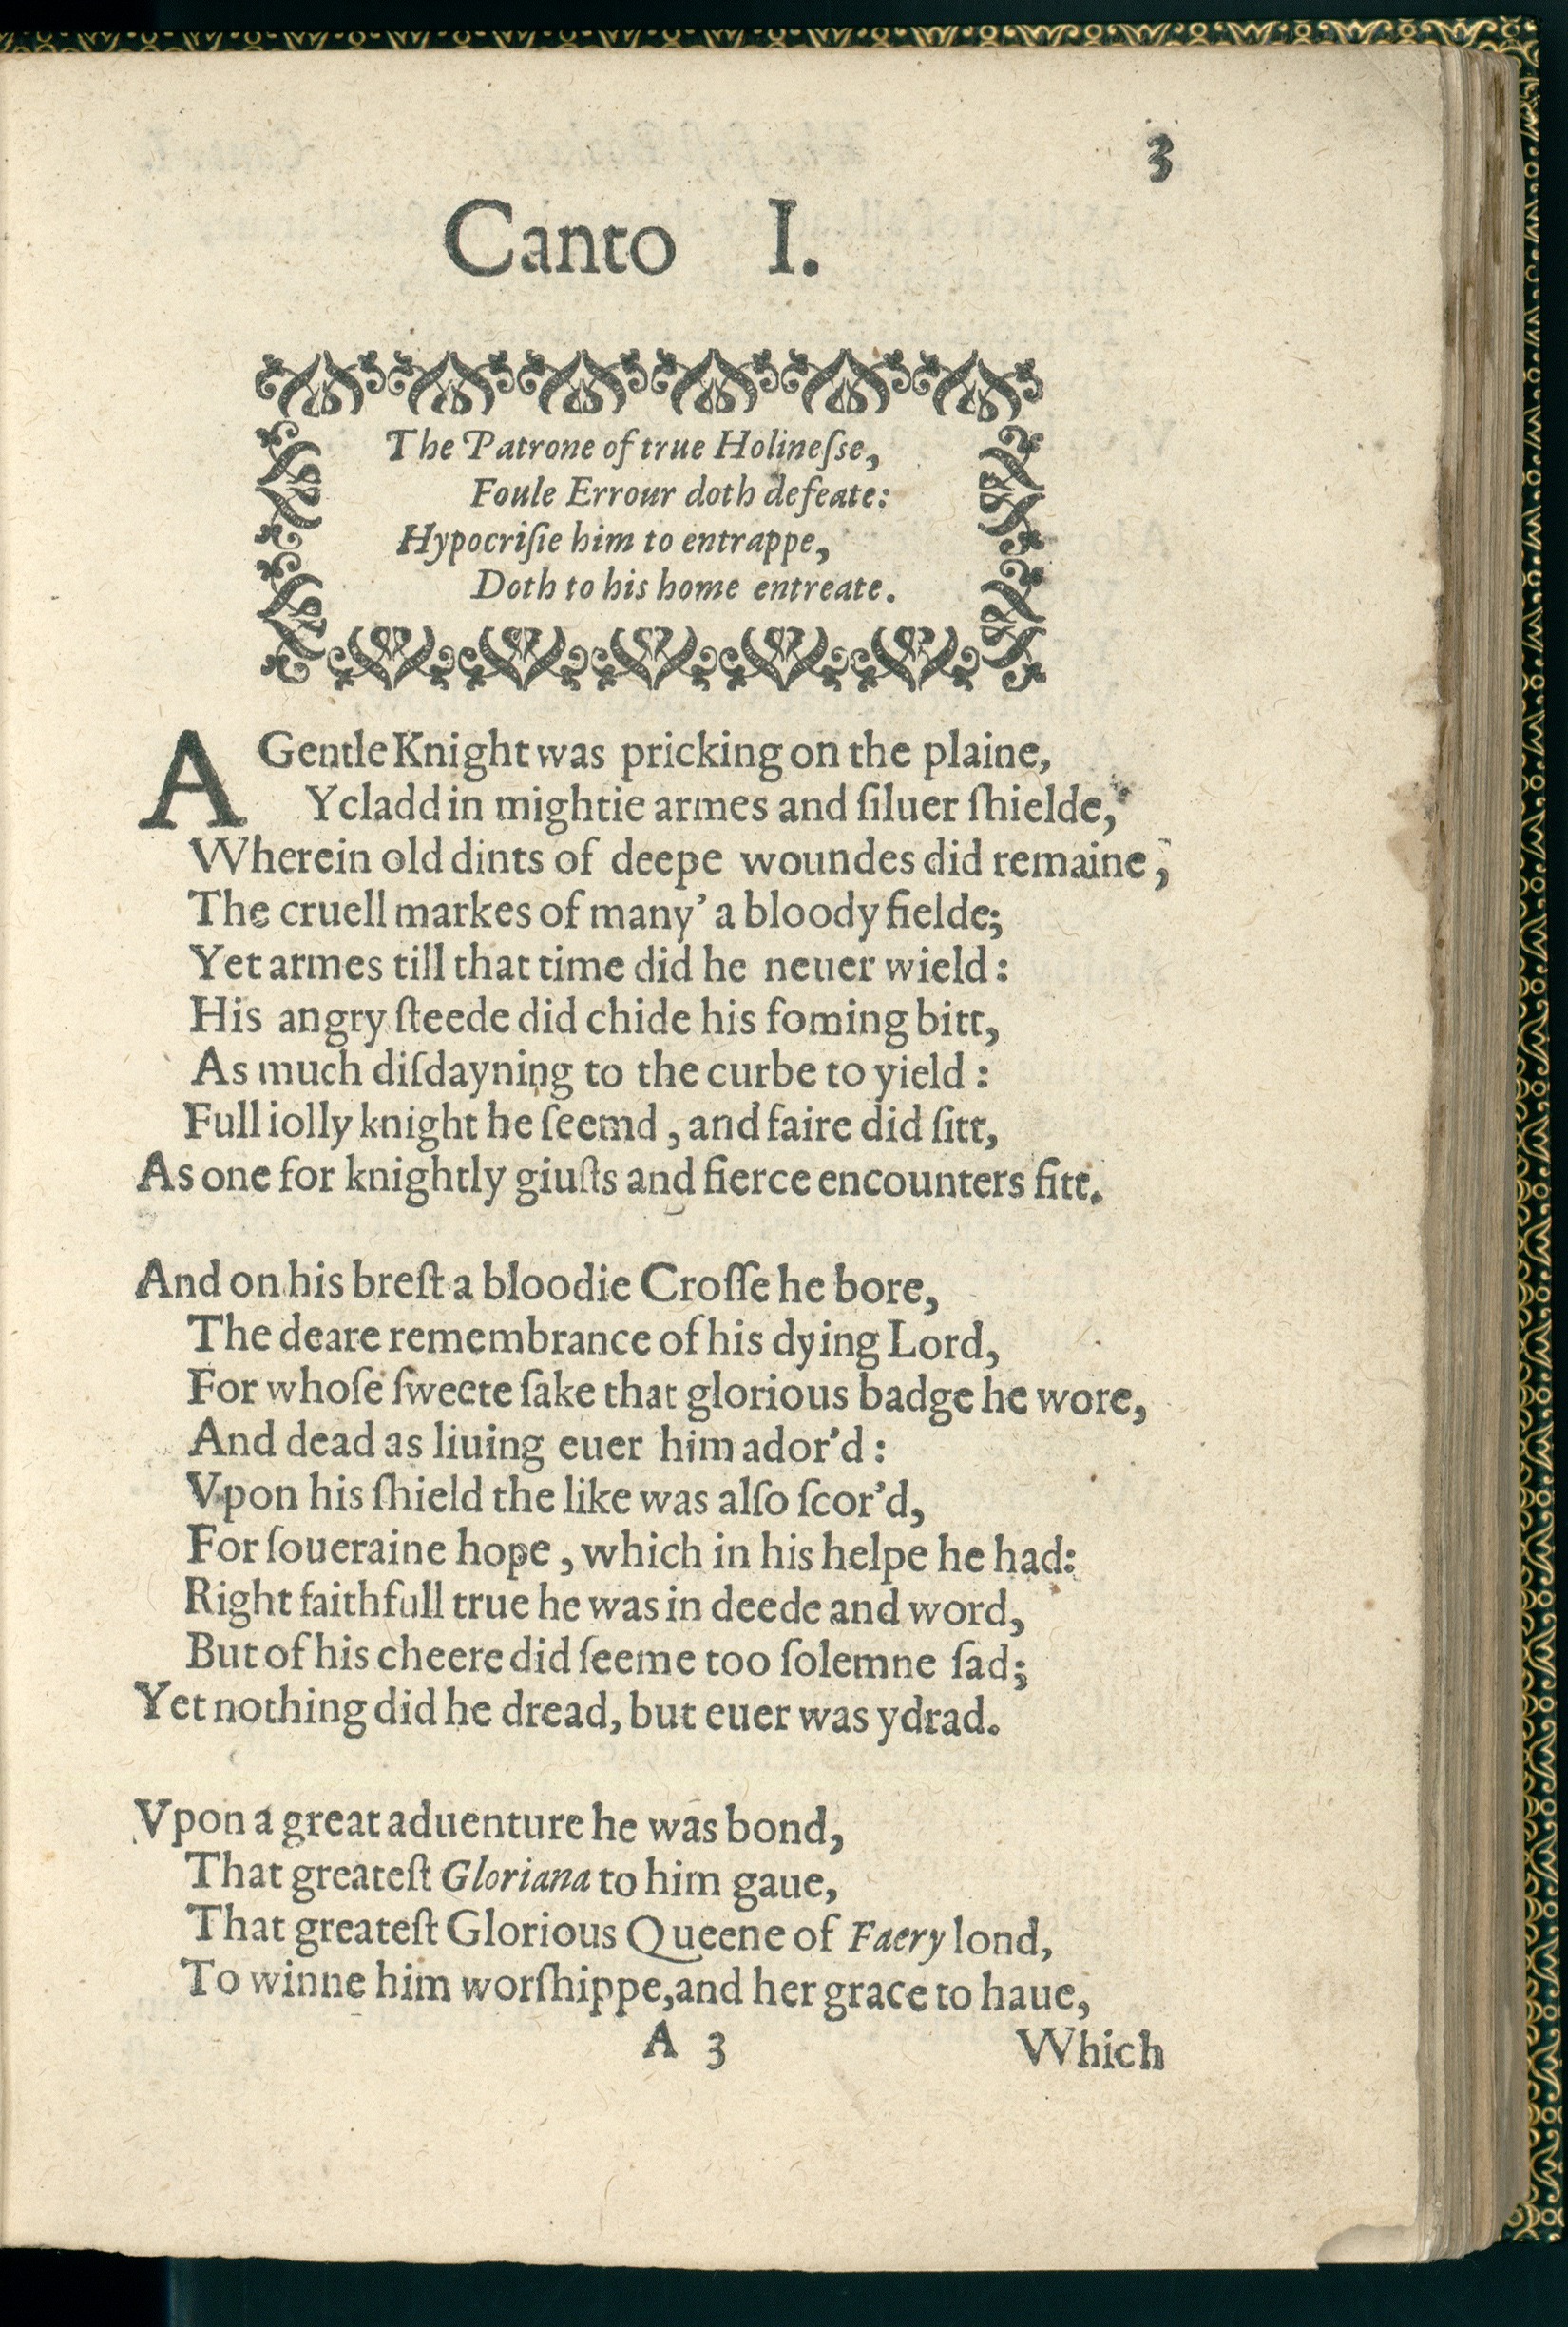 3
Canto I.
The Patrone of true Holineſse,
Foule Errour doth defeate:
Hypocriſie him to entrappe,
Doth to his home entreate.
A Gentle Knight was pricking on the plaine,
Ycladd in mightie armes and ſiluer ſhielde,
Wherein old dints of deepe woundes did remaine,
The cruell markes of many' a bloody fielde;
Yet armes till that time did he neuer wield:
His angry ſteede did chide his foming bitt,
As much diſdayning to the curbe to yield:
Full iolly knight he ſeemd, and faire did ſitt,
As one for knightly giuſts and fierce encounters fitt.
And on his breſt a bloodie Croſſe he bore,
The deare remembrance of his dying Lord,
For whoſe ſweete ſake that glorious badge he wore,
And dead as liuing euer him ador'd:
Vpon his ſhield the like was alſo ſcor'd,
For ſoueraine hope, which in his helpe he had:
Right faithfull true he was in deede and word,
But of his cheere did ſeeme too ſolemne ſad;
Yet nothing did he dread, but euer was ydrad.
Vpon a great aduenture he was bond,
That greateſt Gloriana to him gaue,
That greateſt Glorious Queene of Faery lond,
To winne him worſhippe, and her grace to haue,
A 3 Which